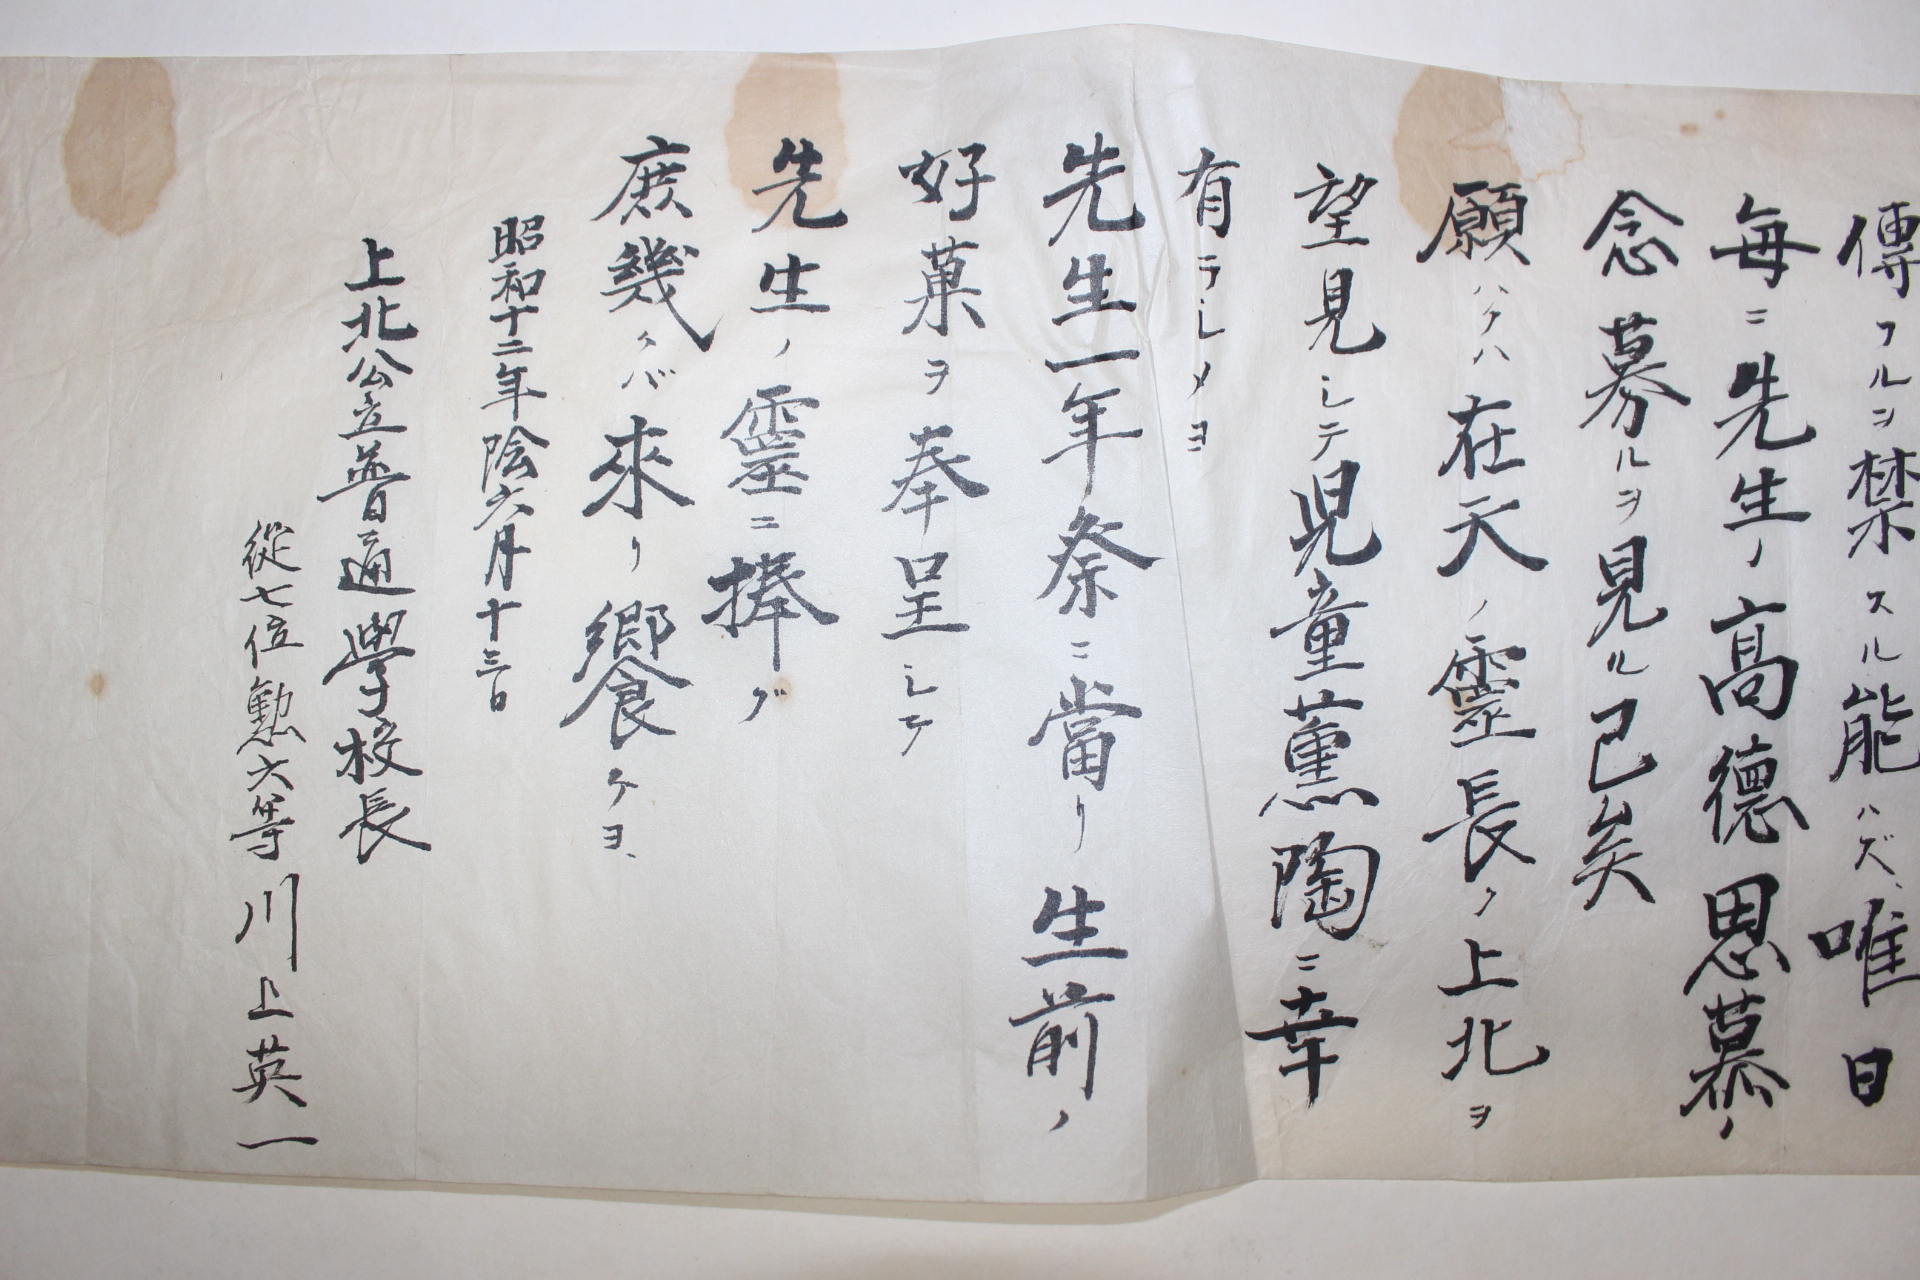 傳フルヲ禁スル能ハズ、唯日
毎ニ先生ノ高德思慕ノ
念募ルヲ見ル已矣
願ハクハ在天ノ靈長ク上北ヲ
望見シテ児童薫陶ニ幸
有ラシメヨ
先生一年祭ニ當リ生前ノ
好菓ヲ奉呈シテ
先生ノ靈ニ捧グ
庶幾クバ來リ饗ケヨ、
昭和十二年陰六月十三日
上北公立普通學校長
從七位勲六等川上英一